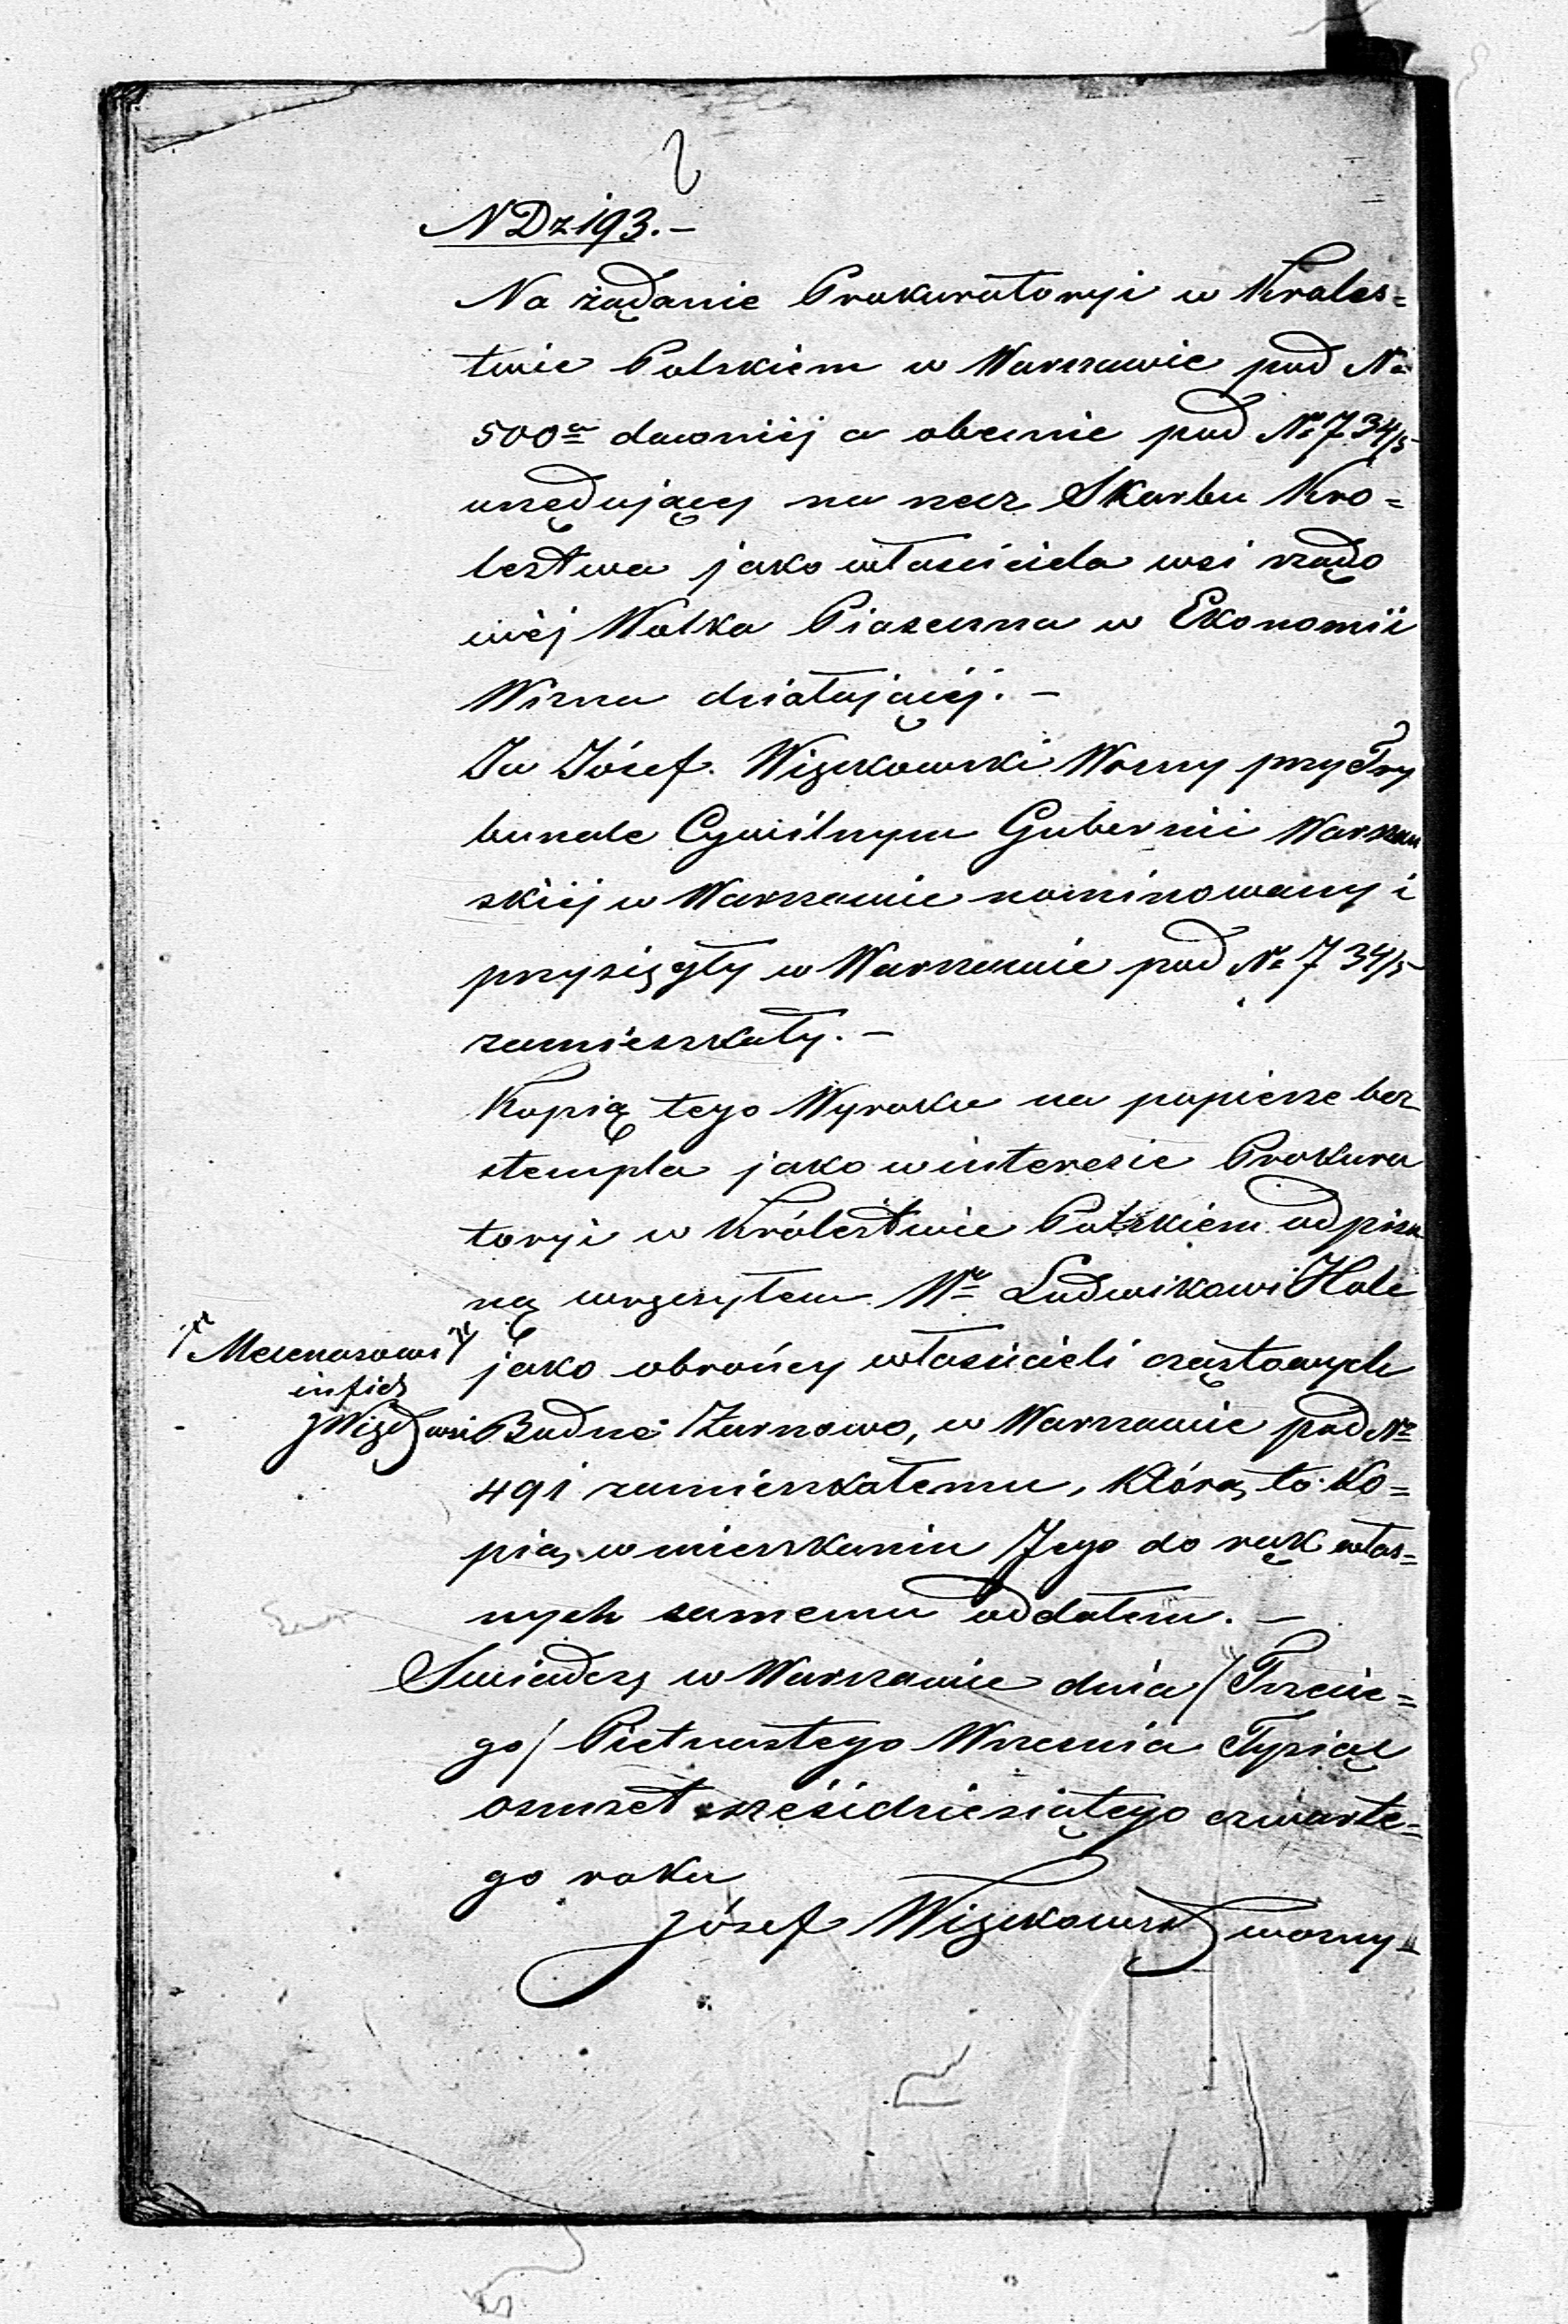 N Dz 193. –
Na żądanie Prokuratoryi w Króles=
twie Polskiem w Warszawie pod Nr
500a dawniéj a obecnie pod Nr 734/5
urzędującéj na rzecz Skarbu Kró=
lestwa jako właściciela wsi rządo
wéj Wolka Piaseczna w Ekonomii
Wizna działającéj. –
Ja Józef Wizekowski Woźny przy Try
bunale Cywilnym Gubernii Warszaw
skiéj w Warszawie nominowany i
przysięgły w Warszawie pod Nr 734/5
zamieszkały. –
Kopią tego Wyroku na papierze bez
stempla jako w interesie Prokura
toryi w Królestwie Polskiem odpisa
ną wręczyłem Mu Ludwikowi Hole
Mecenasowi
jako obrońcy właścicieli cząstkowych
in fidem
JWizekowski
Budne Żarnowo, w Warszawie pod Nr
491 zamieszkałemu, którą to Ko=
pią w mieszkaniu Jego do rąk włas=
nych samemu oddałem. –
Świadczę w Warszawie dnia / Trzecie=
go / Pietnastego Września Tysiąc
osmset sześćdziesiątego czwarte=
go roku
Józef Wizekowski woźny